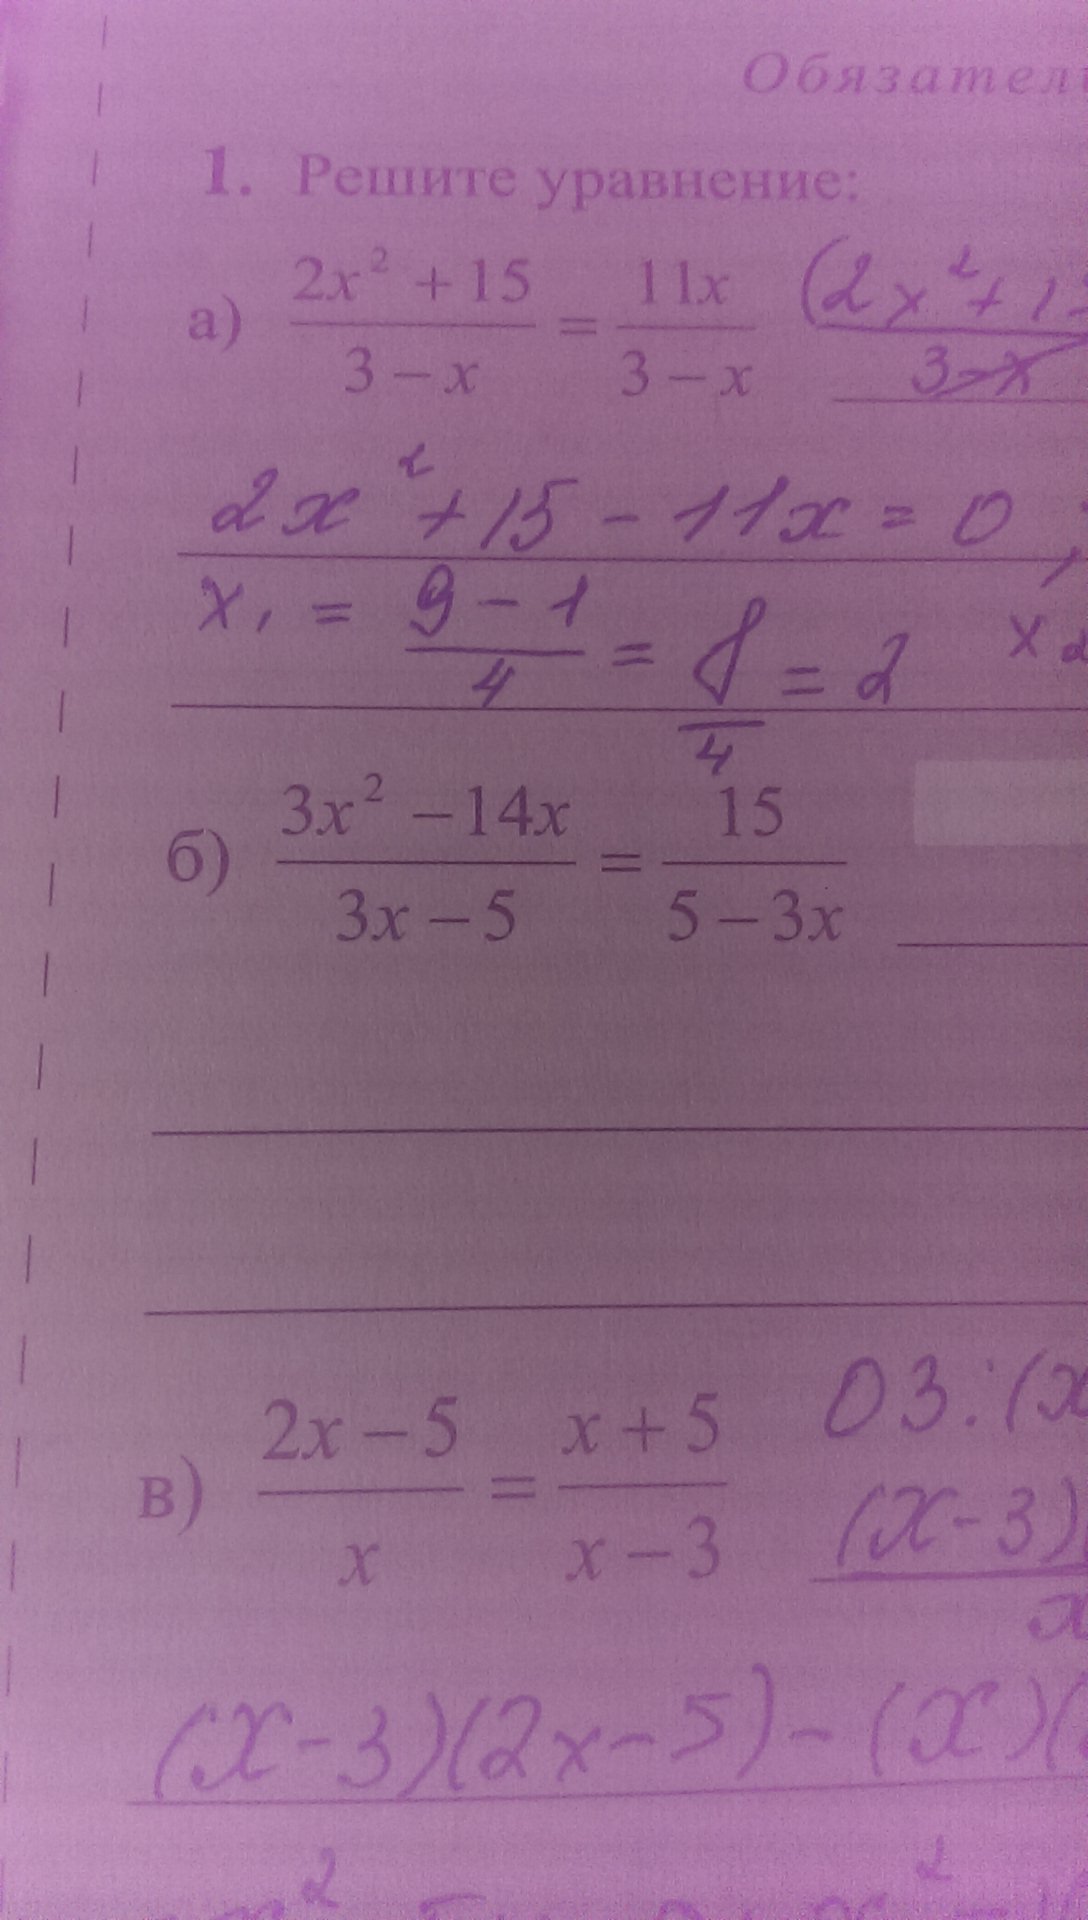 Обязател
1. Решите уравнение:
а) (2x² + 15)/(3 − x) = 11x/(3 − x) (2x² + 1
3-x
2x² + 15 - 11x = 0 ;
x₁ = (9 - 1)/4 = 8/4 = 2 x₂
б) (3x² − 14x)/(3x − 5) = 15/(5 − 3x)
ОЗ: (x
в) (2x − 5)/x = (x + 5)/(x − 3) (x-3)
x
(x-3)(2x-5) - (x)(